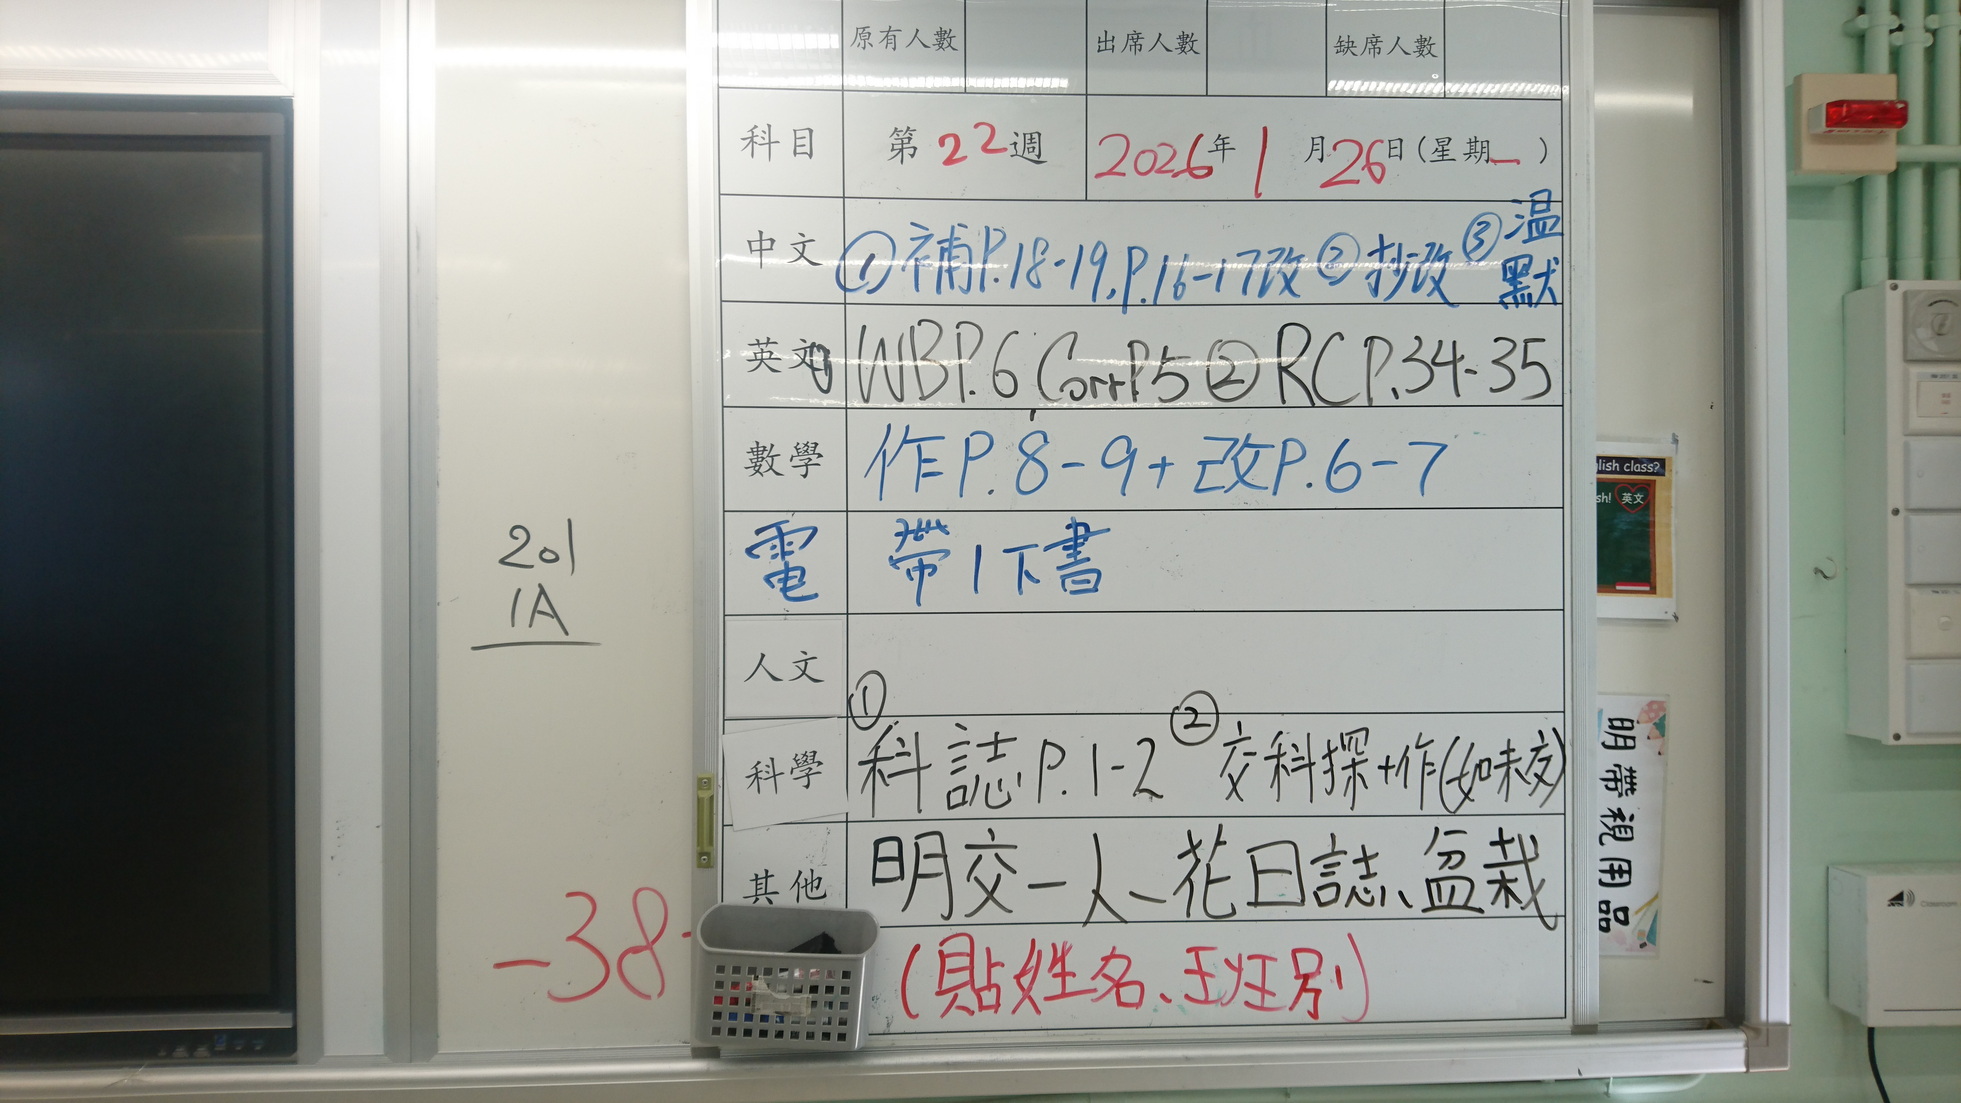 原有人數 出席人數 缺席人數
科目 第22週 2026年1月26日(星期一)
中文 ①補P.18-19,P.16-17改 ②抄改 ③温默
英文 ①WBP.6, Corr P.5 ②RC P.34-35
數學 作P.8-9+改P.6-7
電 帶1下書
人文
科學 ①科誌P.1-2 ②交科探+作(如未交)
其他 明交一人一花日誌、盆栽
(貼姓名、班別)
201
1A
-38
lish class?
sh! 英文
明帶視用品
Classroom